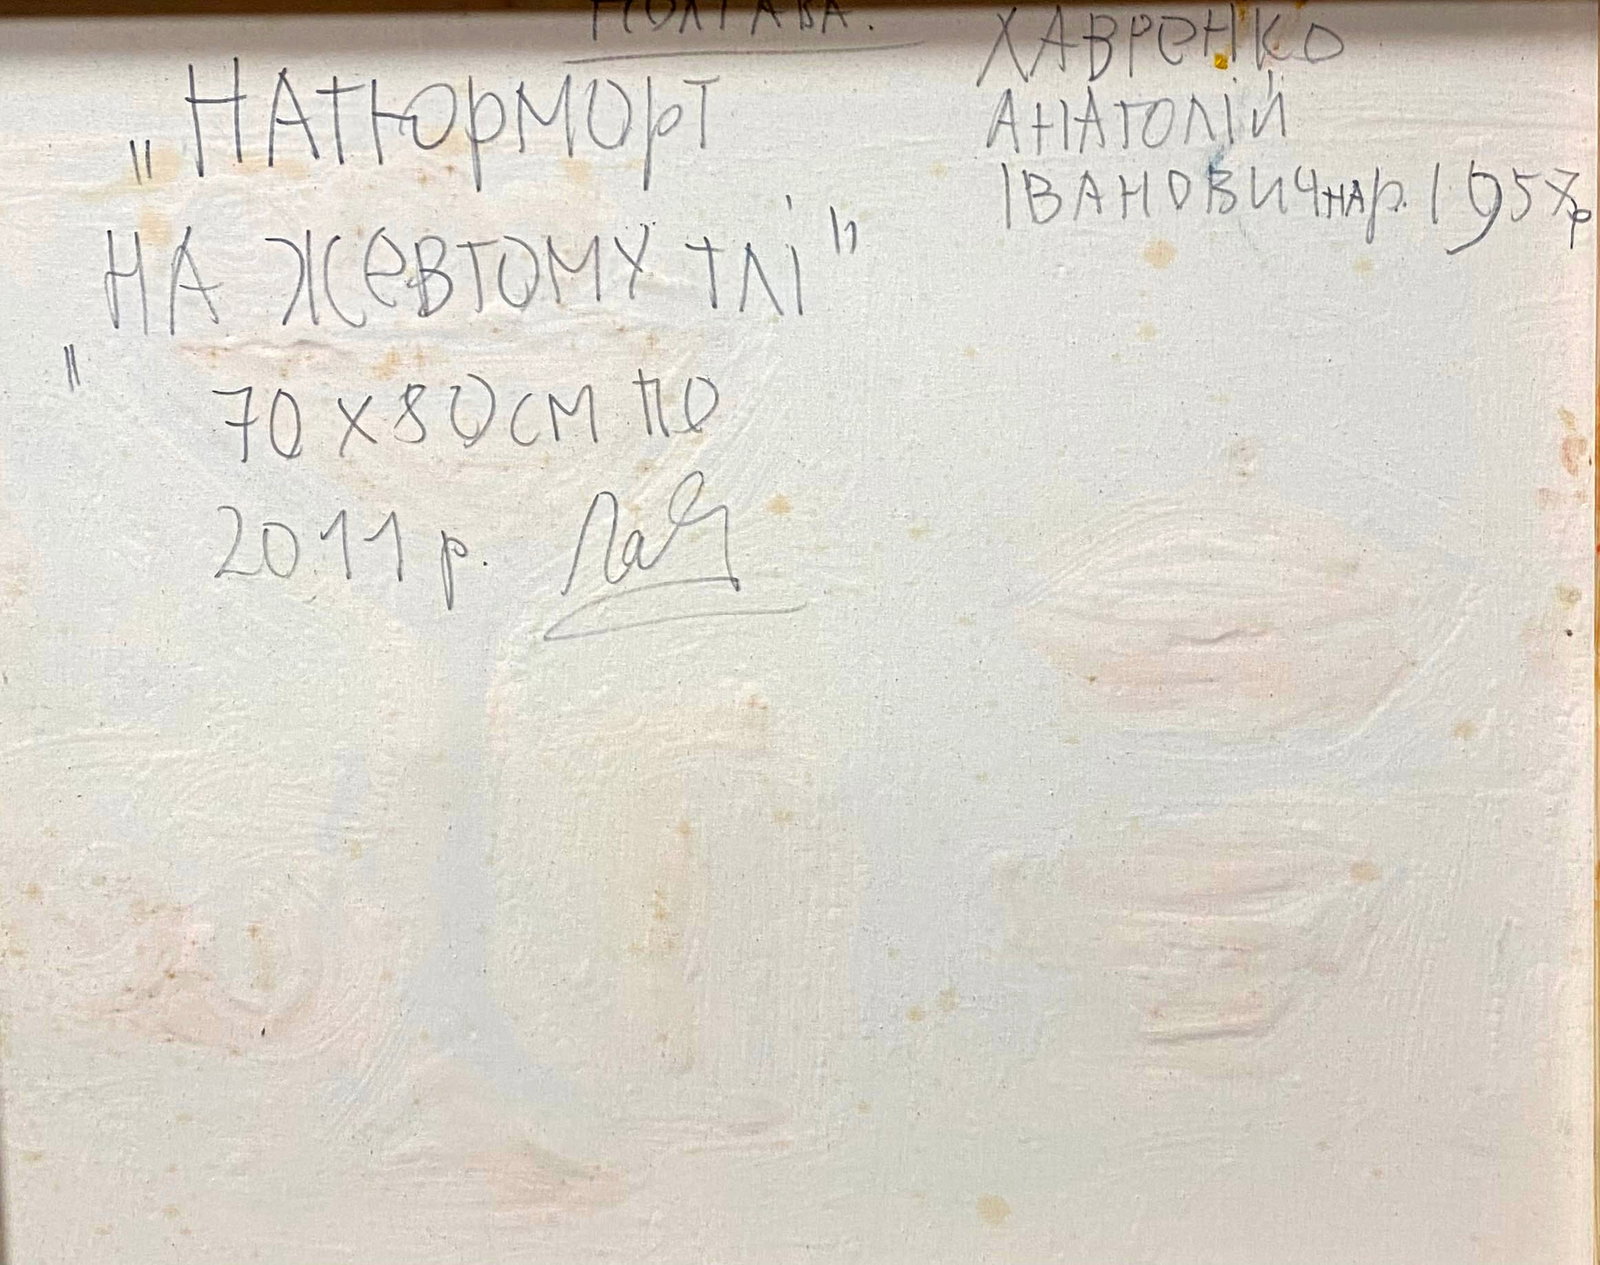 ПОЛТАВА.
„НАТЮРМОРТ
НА ЖЕВТОМУ ТЛІ"
"
70 х 80 см ПО
2011 р.
ХАВРЕНКО
АНАТОЛІЙ
ІВАНОВИЧ нар. 1957р